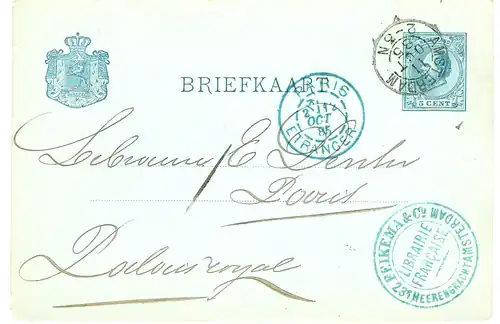 BRIEFKAART
AMSTERDAM
5 CENT
PARIS
OCT
85
ETRANGER
Librairie E Dentu
Paris
Palais royal
FEIKEMA & Co.
LIBRAIRIE
FRANÇAISE
231 HEERENGRACHT AMSTERDAM